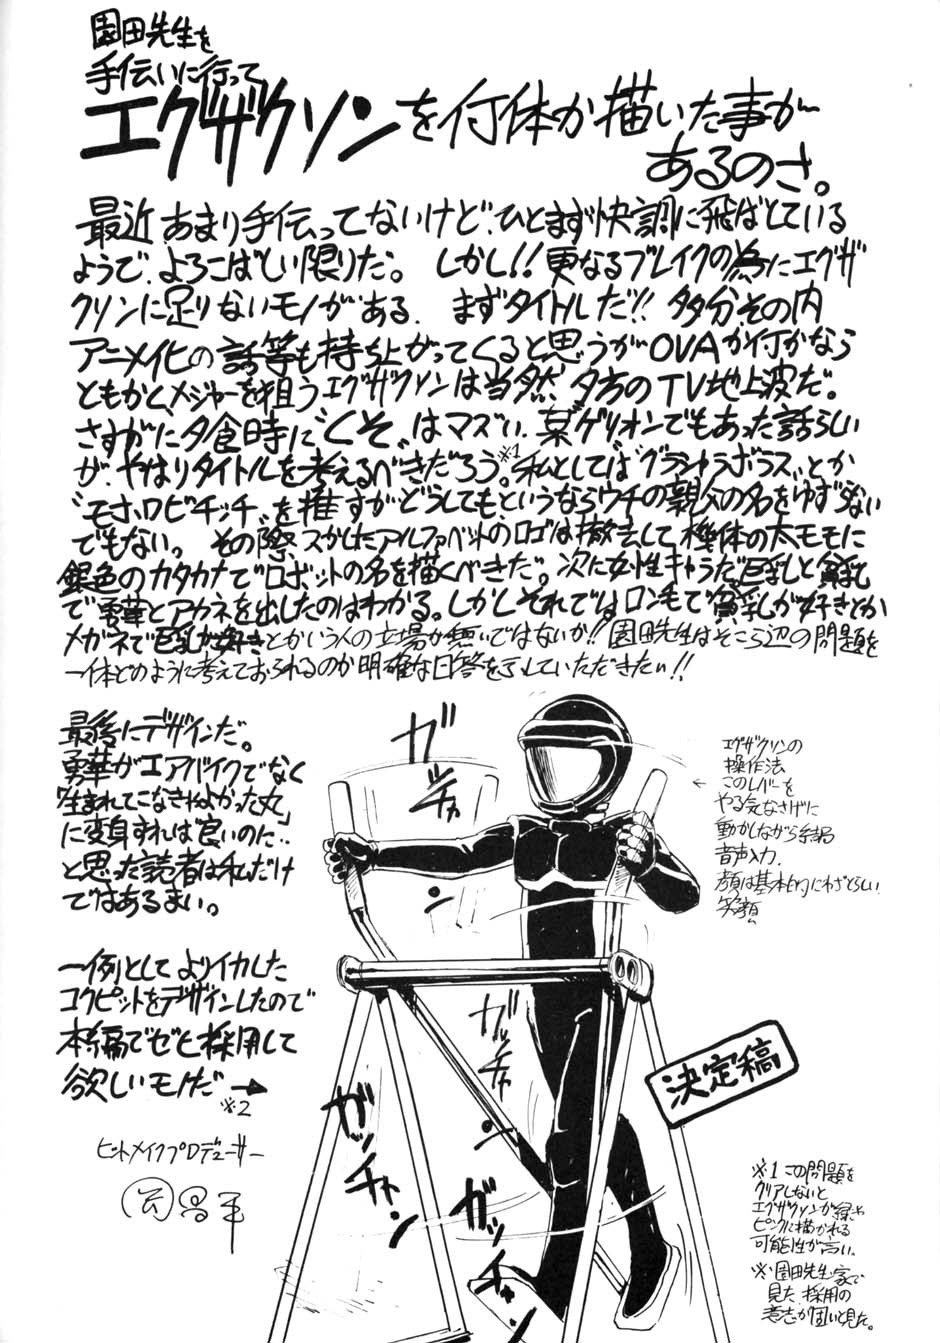 園田先生を
手伝いに行って
エグザクソンを何体か描いた事が
あるのさ。
最近あまり手伝ってないけど、ひとまず快調に飛ばとている
ようで、よろこばしい限りだ。しかし!!更なるブレイクの為にエグザ
クソンに足りないモノがある。まずタイトルだ!!多分その内
アニメイヒの話等も持ち上がってくると思うが OVAか何かなら
ともかく、メジャーを狙うエグザクソンは当然夕方のTV地上波だ。
さすがに夕食時に〝くそ〟はマズい。某ゲリオンでもあった話らしい
が、やはりタイトルを考えるべきだろう。※1私としては〝グランゥラボラス〟とか
〝モホロビチッチ〟を推すがどうしてもというならウチの親父の名をゆずらない
でもない。その際スかしたアルファベットのロゴは撤去して機体の太モモに
銀色のカタカナでロボットの名を描くべきだ。次に女性キャラだ巨乳と貧乳
で勇華とアカネを出したのはわかる。しかしそれではロン毛で貧乳が好きとか
メガネで巨乳が好きとかいう人の立場が無いではないか!!園田先生はそこら辺の問題を
一体どのように考えておられるのか明確な回答を示していただきたい!!
最後にデザインだ。
勇華がエアバイクでなく
「生まれてこなきゃよかった丸」
に変身すれば良いのに‥
と思った読者は私だけ
ではあるまい。
一例としてよりイカした
コクピットをデザインしたので
本編でぜヒ採用して
欲しいモノだ→
※2
ヒットメイクプロデューサー
エグザクソンの
操作法
←このレバーを
やる気なさげに
動かしながら
音声入力.
顔は基本的にわざとらしい
笑顔。
ガッチャン
ガッチャン
ガッチャン
ガッチャン
決定稿
※1この問題を
クリアしないと
エグザクソンが緑や
ピンクに描かれる
可能性が高い。
※園田先生家で
見た。採用の
意志が固いと見た。